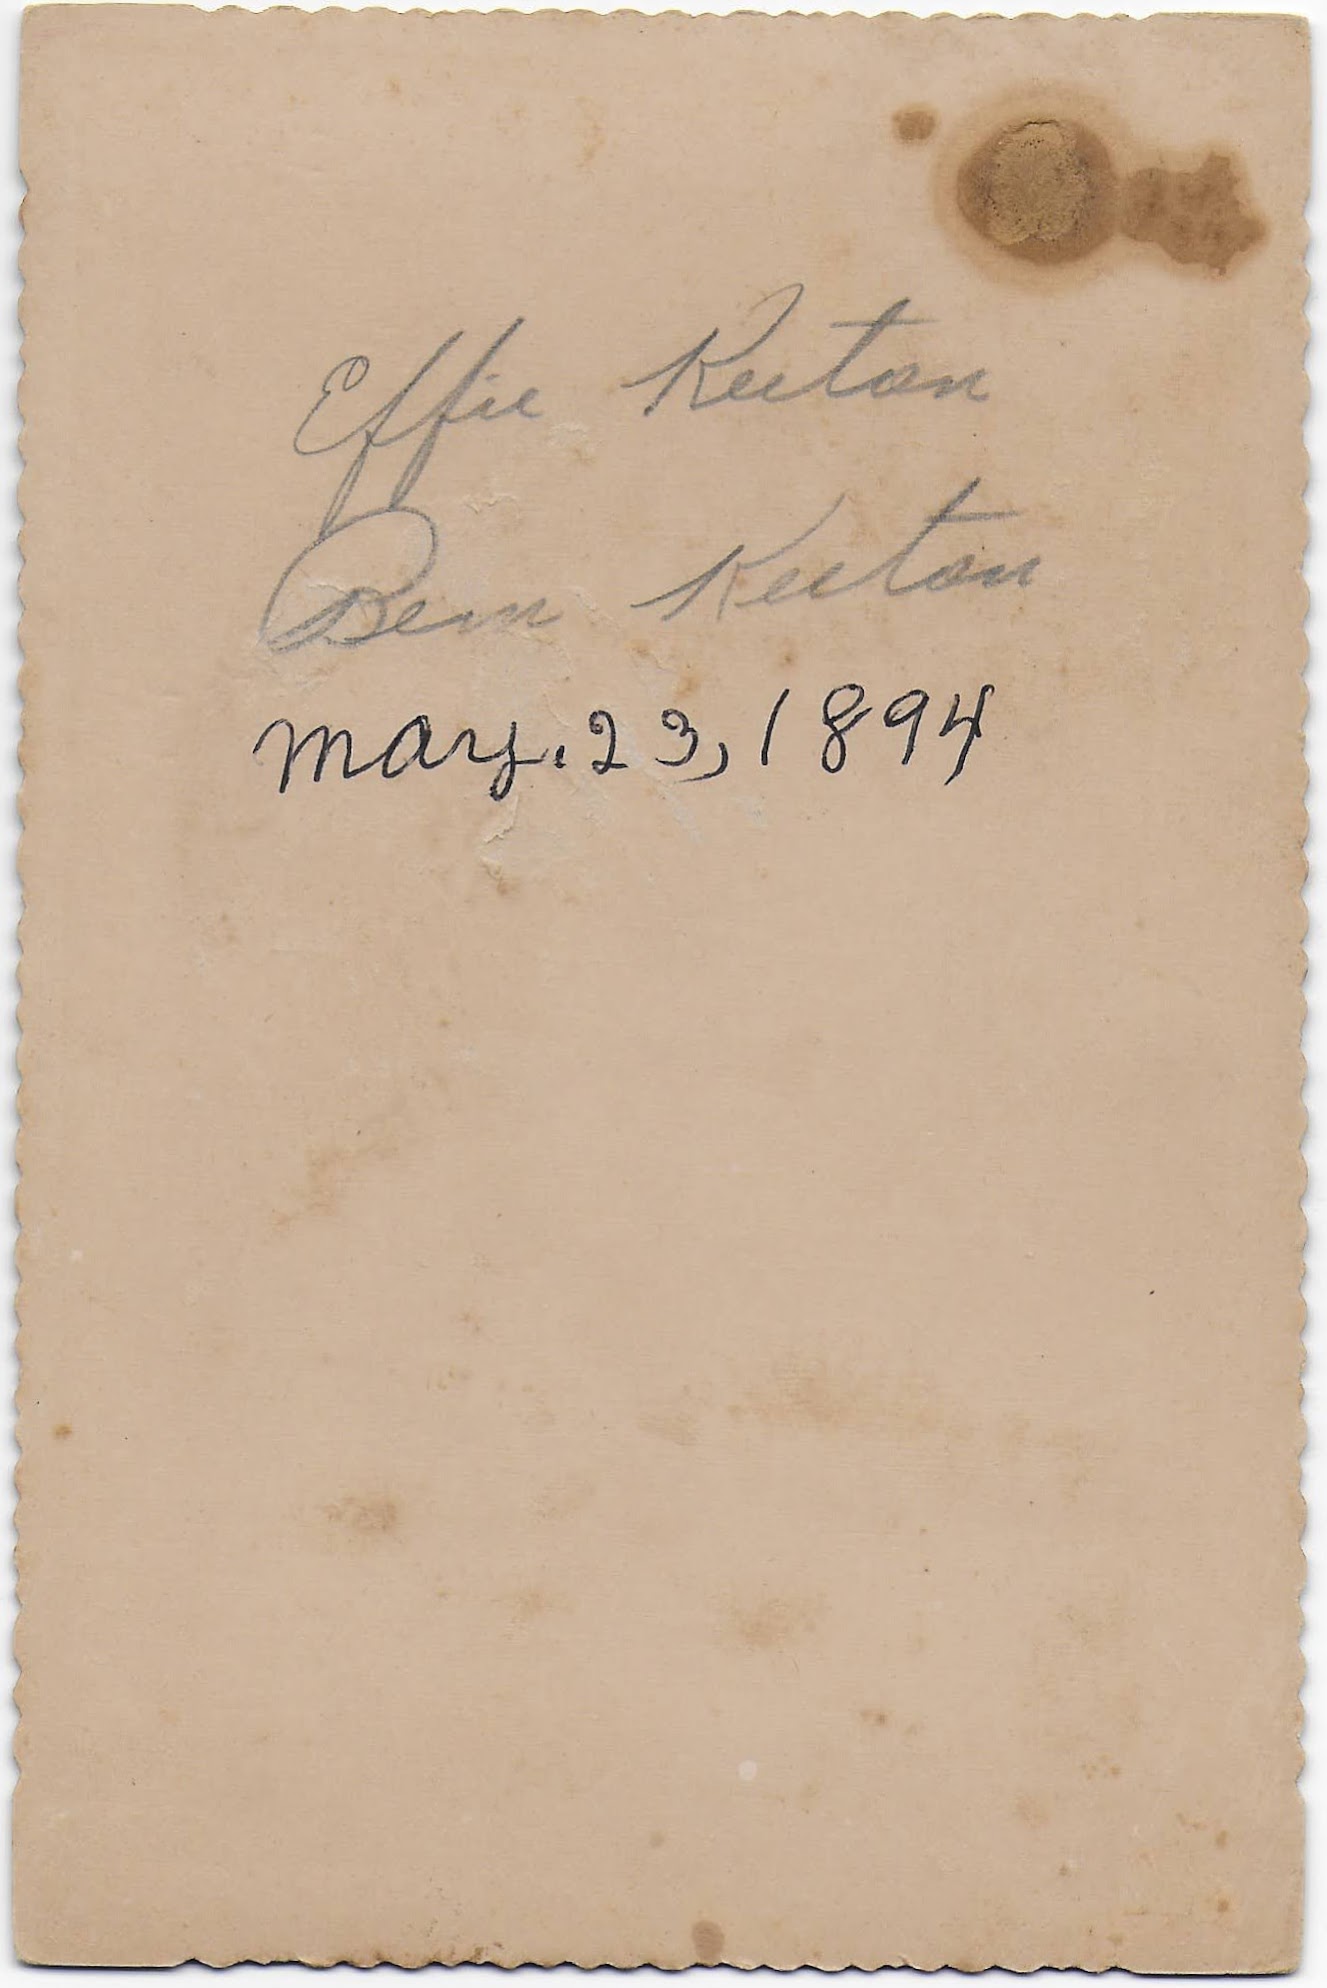 Effie Keeton
Bem Keeton
May. 23, 1894